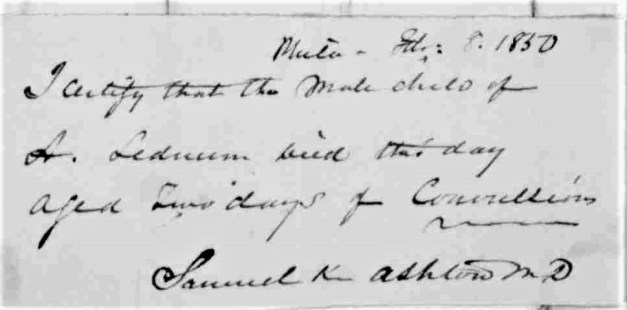 Phila - Feb: 8. 1850
I certify that the Male child of
A. Lednum died this day
aged Two days of Convulsions
Samuel K Ashton M.D